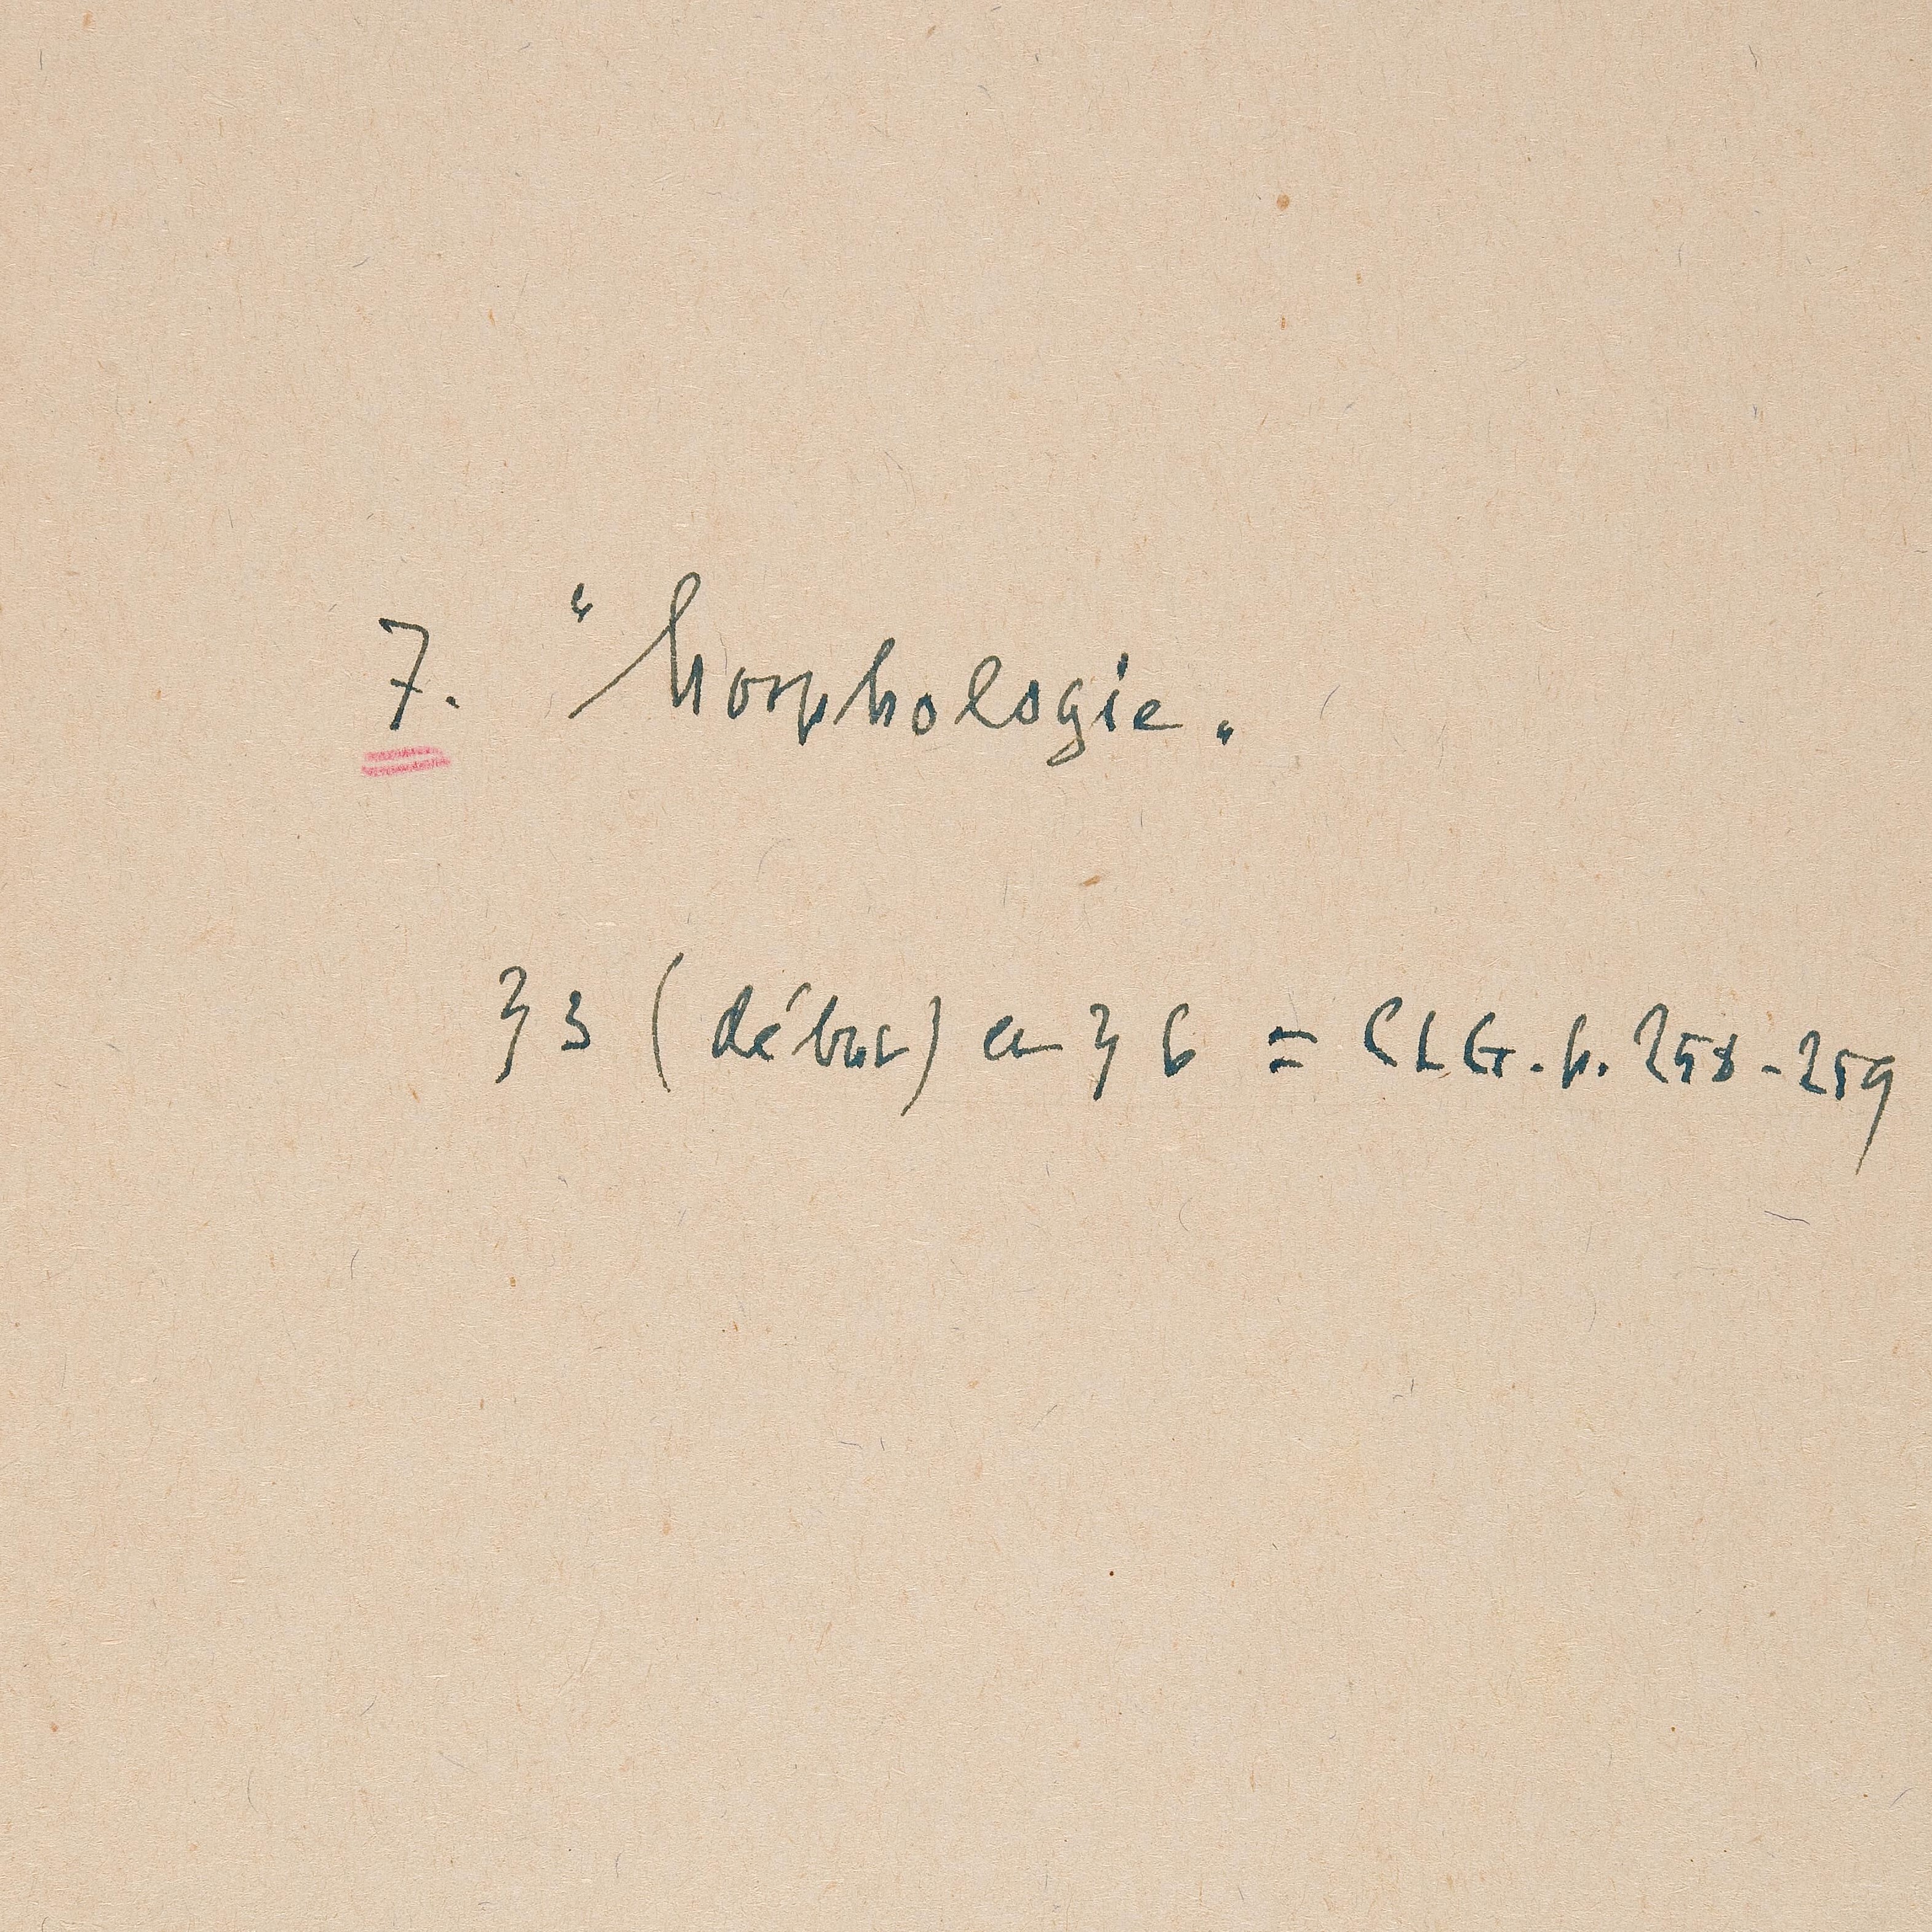 7. "Morphologie.
§ 3 (début) et § 6 = CLG. p. 258-259